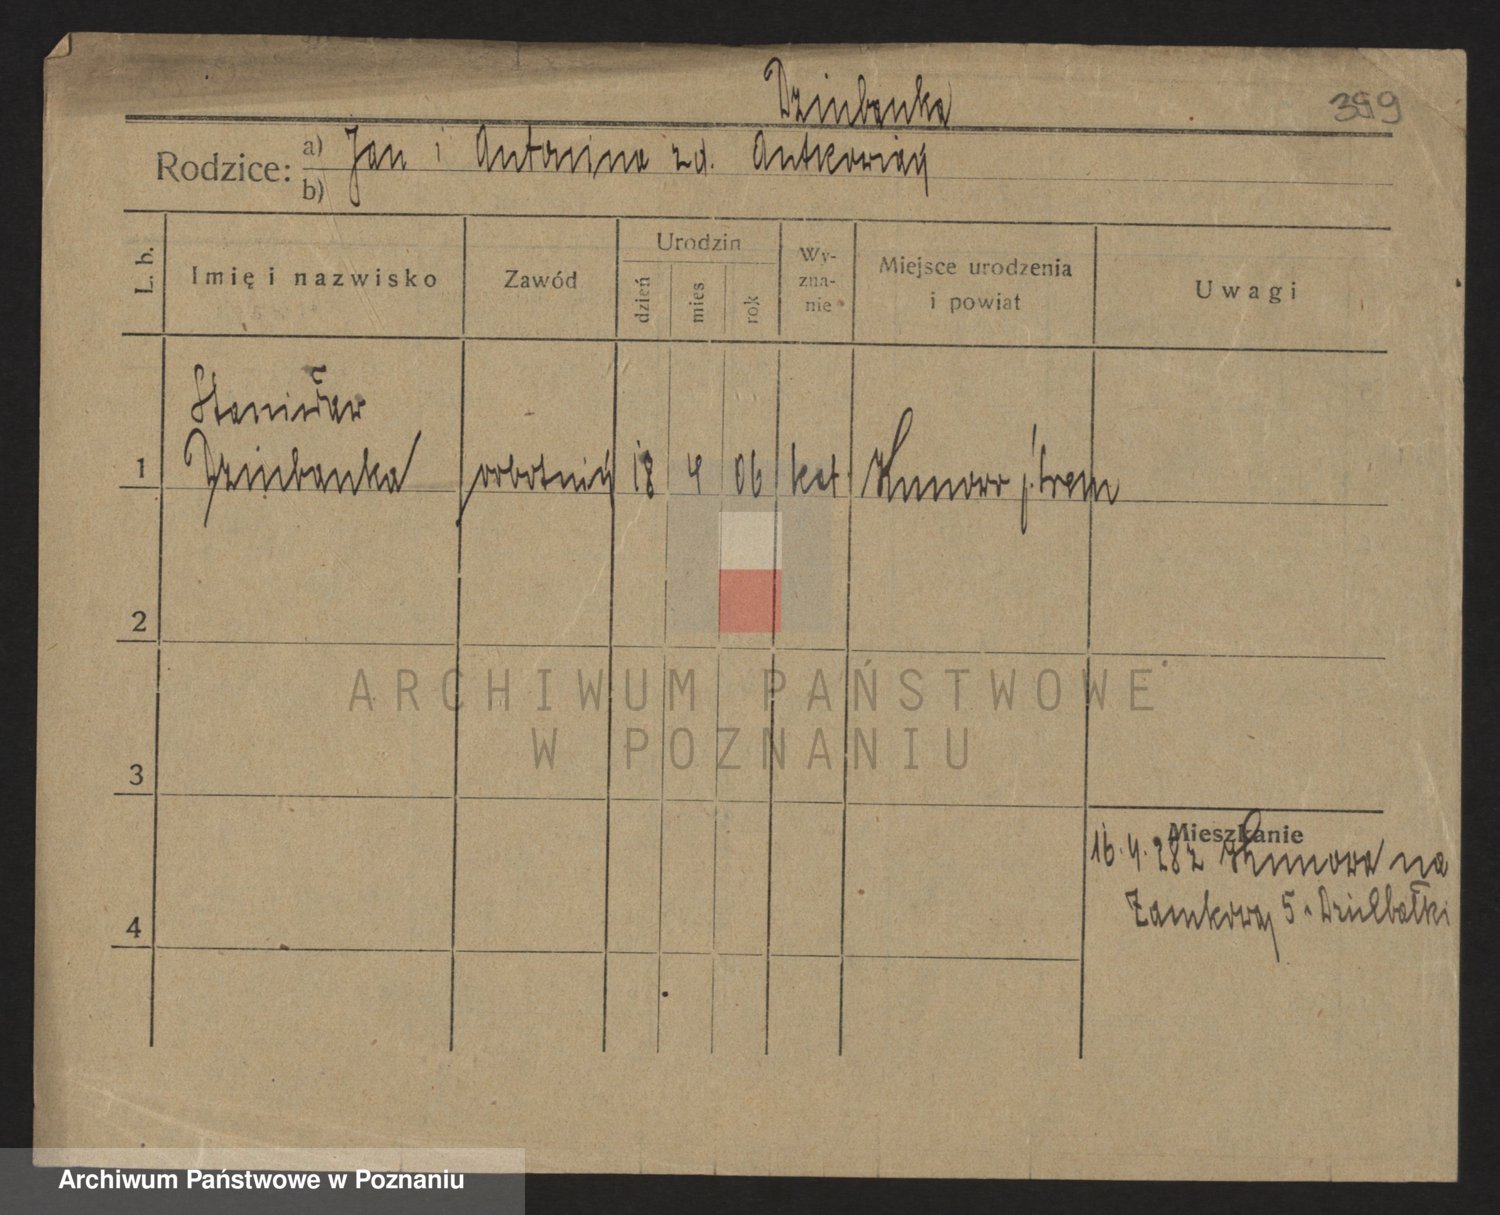 Dziubanka
399
Rodzice: a) Jan i Antonina zd. Antkowiak
b)
L. b.
Imię i nazwisko
Zawód
Urodzin
dzień
mies
rok
Wy-
zna-
nie
Miejsce urodzenia
i powiat
Uwagi
Stanisław
1 Dziubanka robotnik 18 4 06 kat. Kunowo p. Śrem
2
ARCHIWUM PAŃSTWOWE
W POZNANIU
3
Mieszkanie
16.4.28 z Kunowa na
Zamkowa 5
4
Archiwum Państwowe w Poznaniu